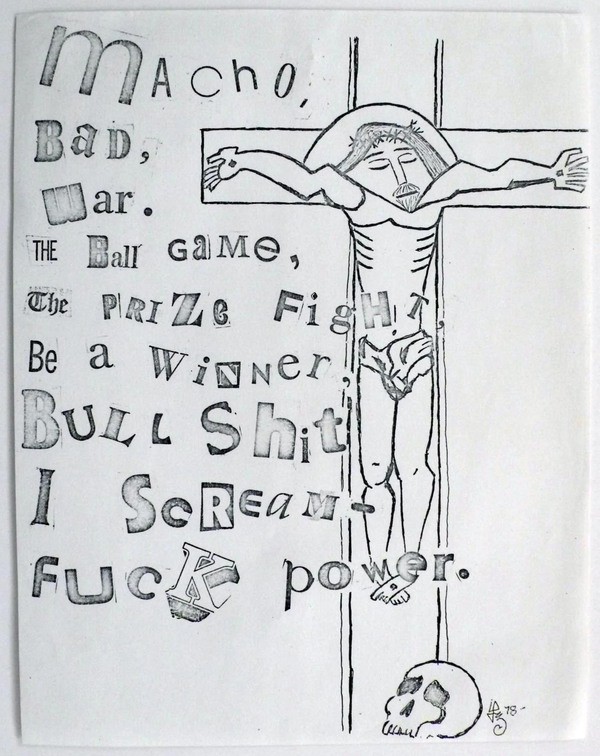 Macho,
Bad,
War.
THE Ball Game,
The PRIZe Fight,
Be a Winner,
BULL Shit
I ScReam-
fucK power.
78-